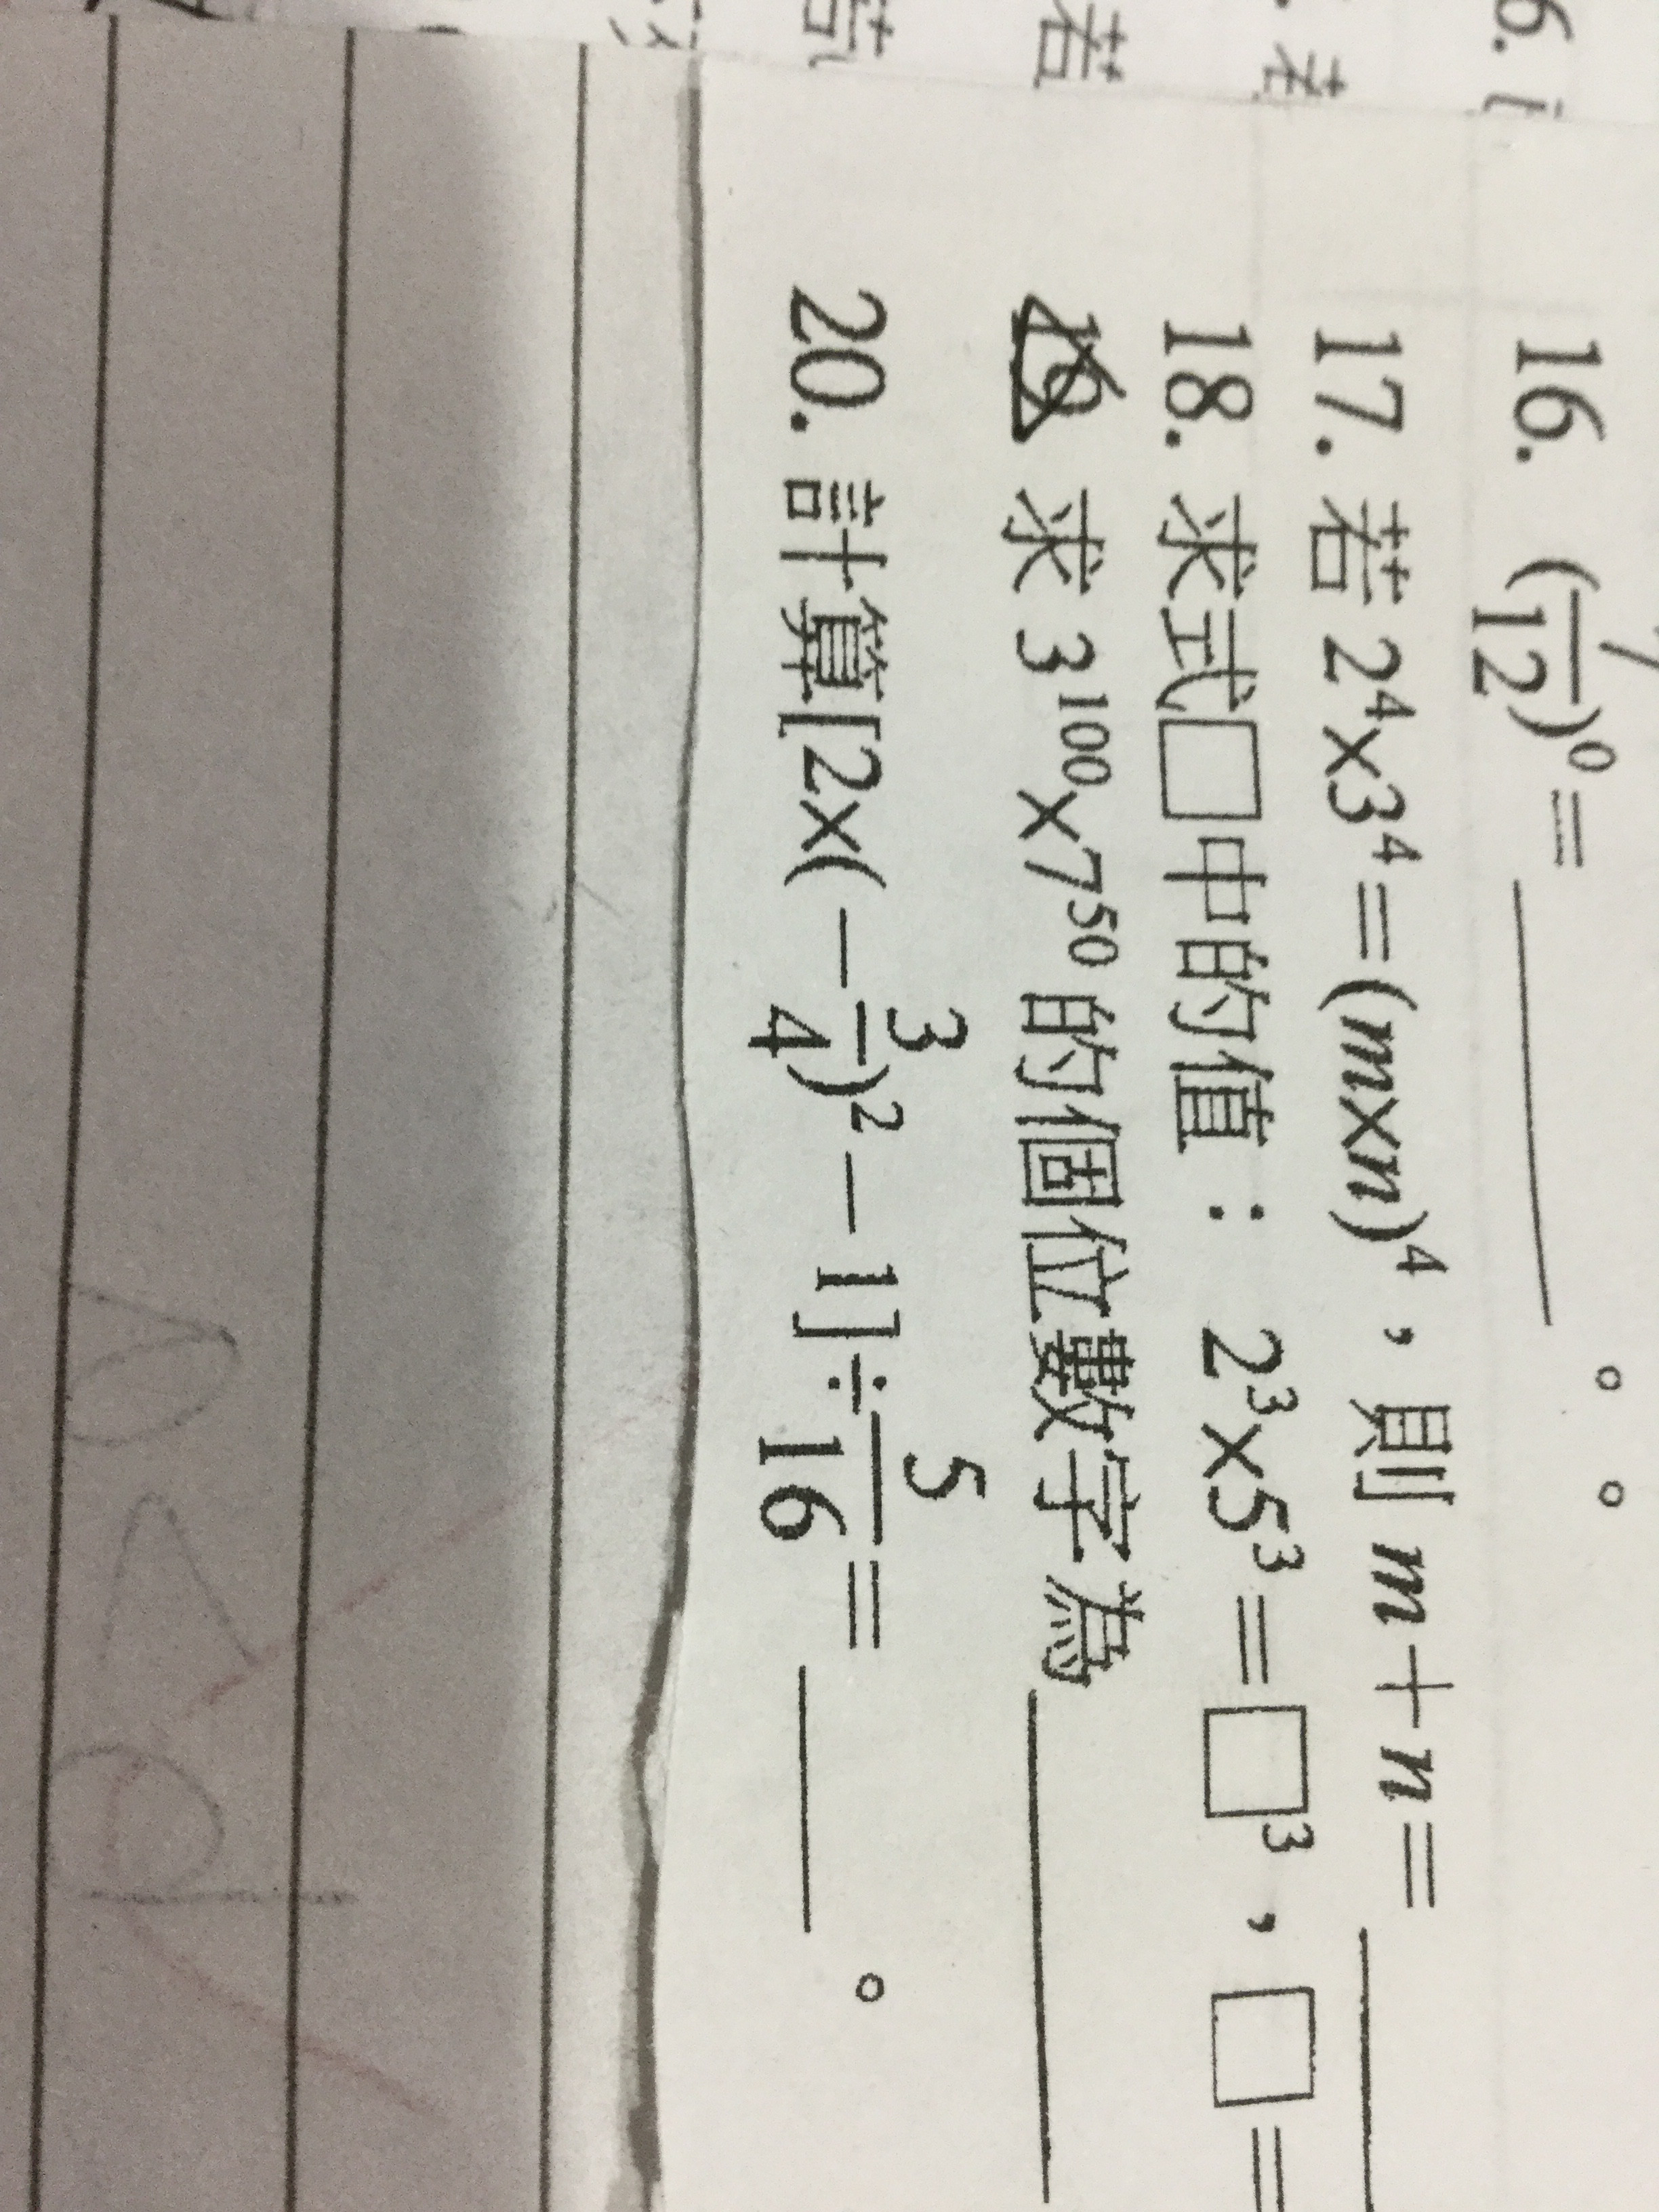 16. (7/12)⁰=______。
17. 若 2⁴×3⁴=(m×n)⁴，則 m+n=______
18. 求式□中的值：2³×5³=□³，□=
19 求 3¹⁰⁰×7⁵⁰ 的個位數字為______
20. 計算[2×(-3/4)²-1]÷5/16=______。